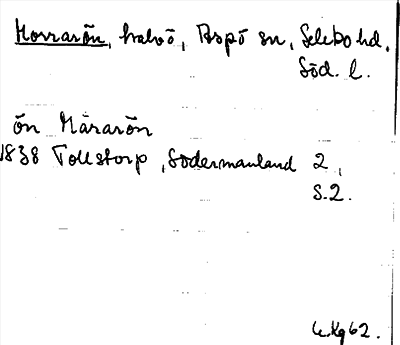 Morrarön, halvö, Aspö sn, Selebo hd,
Söd. l.
ön Märarön
1838 Tollstorp, Södermanland 2,
S.2.
62.